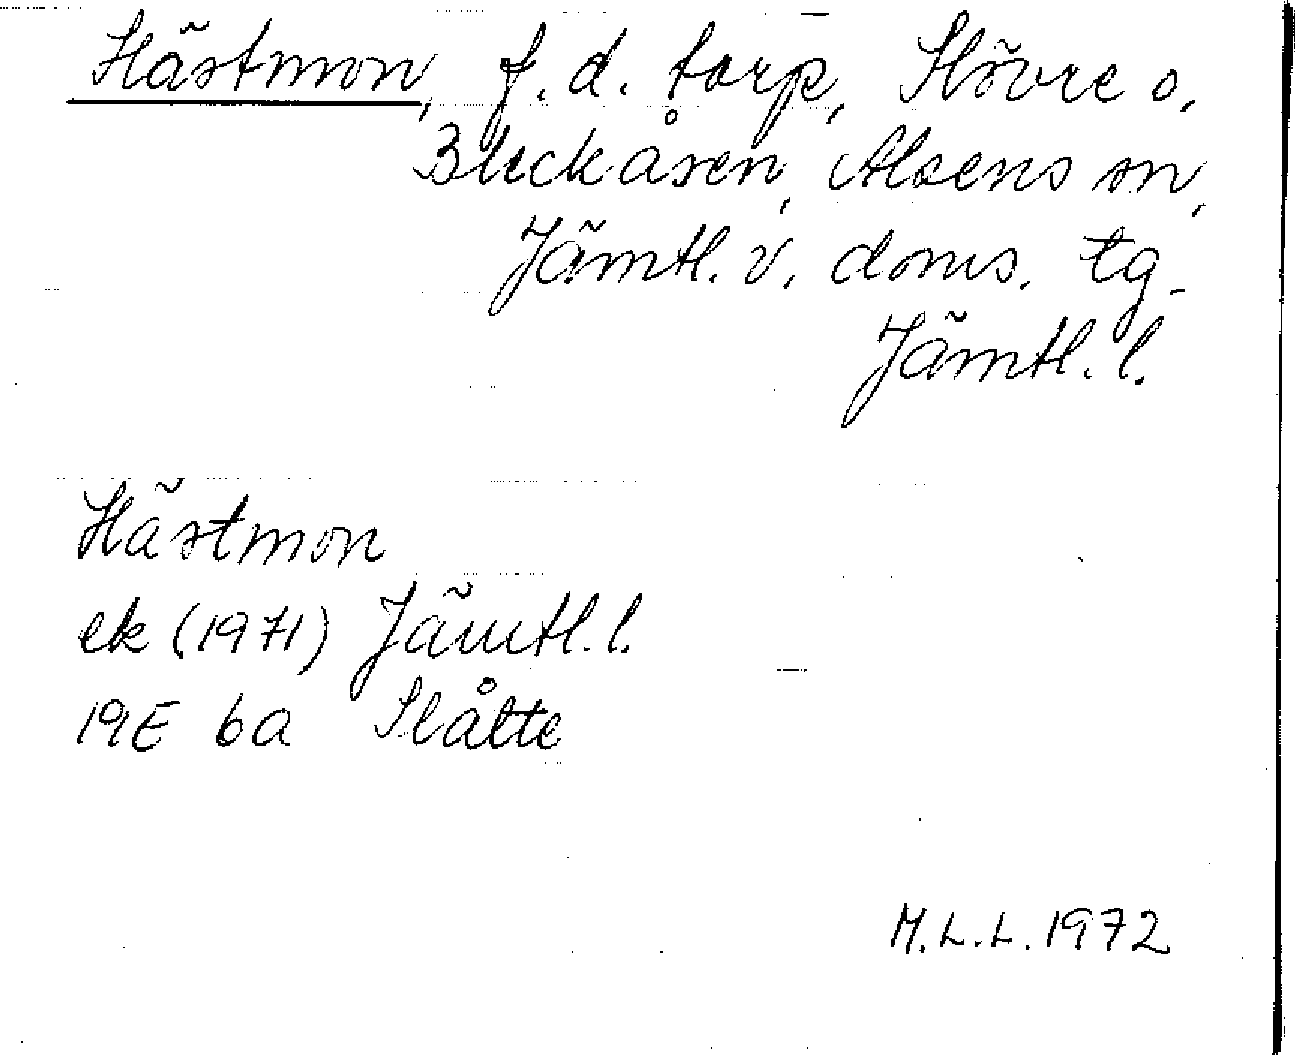 Hästmon, f.d. torp, Hövre o.
Bleckåsen, Alsens sn,
Jämtl. v. doms. tg.
Jämtl. l.
Hästmon
ek (1971) Jämtl. l.
19E 6a Slåtte
M.L.L. 1972